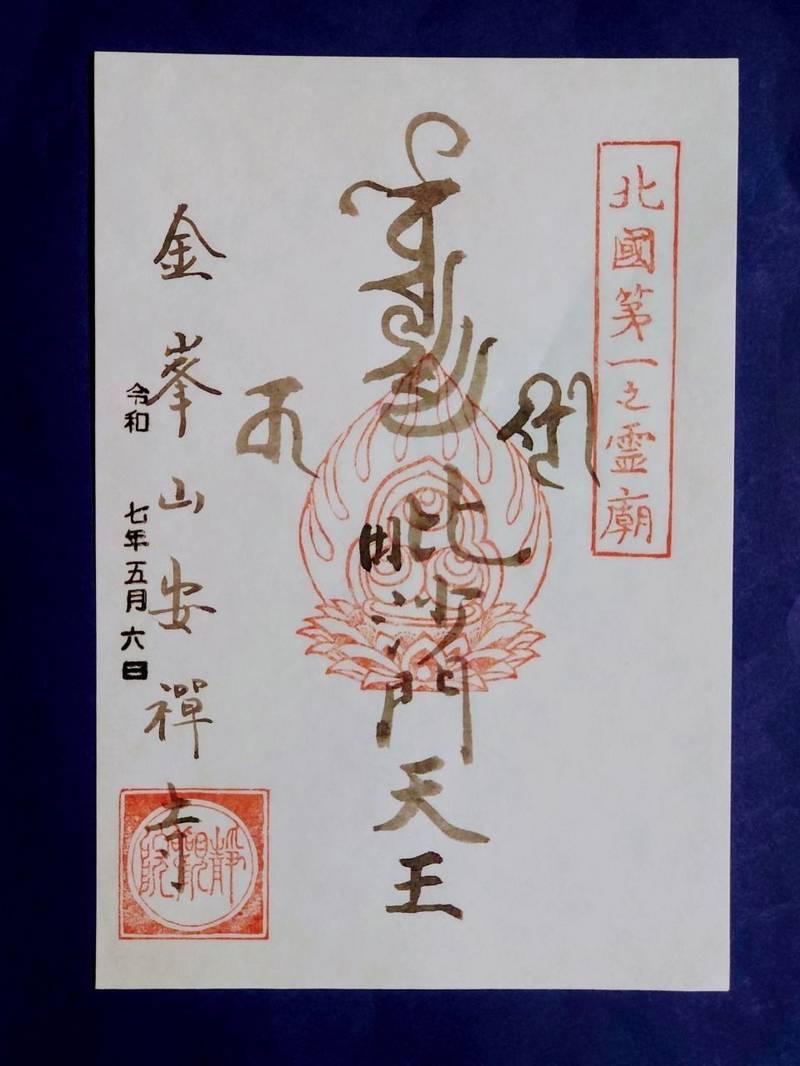 北國第一之霊廟
毗沙門天王
金峯山安禅寺
令和 七年五月六日
静観院